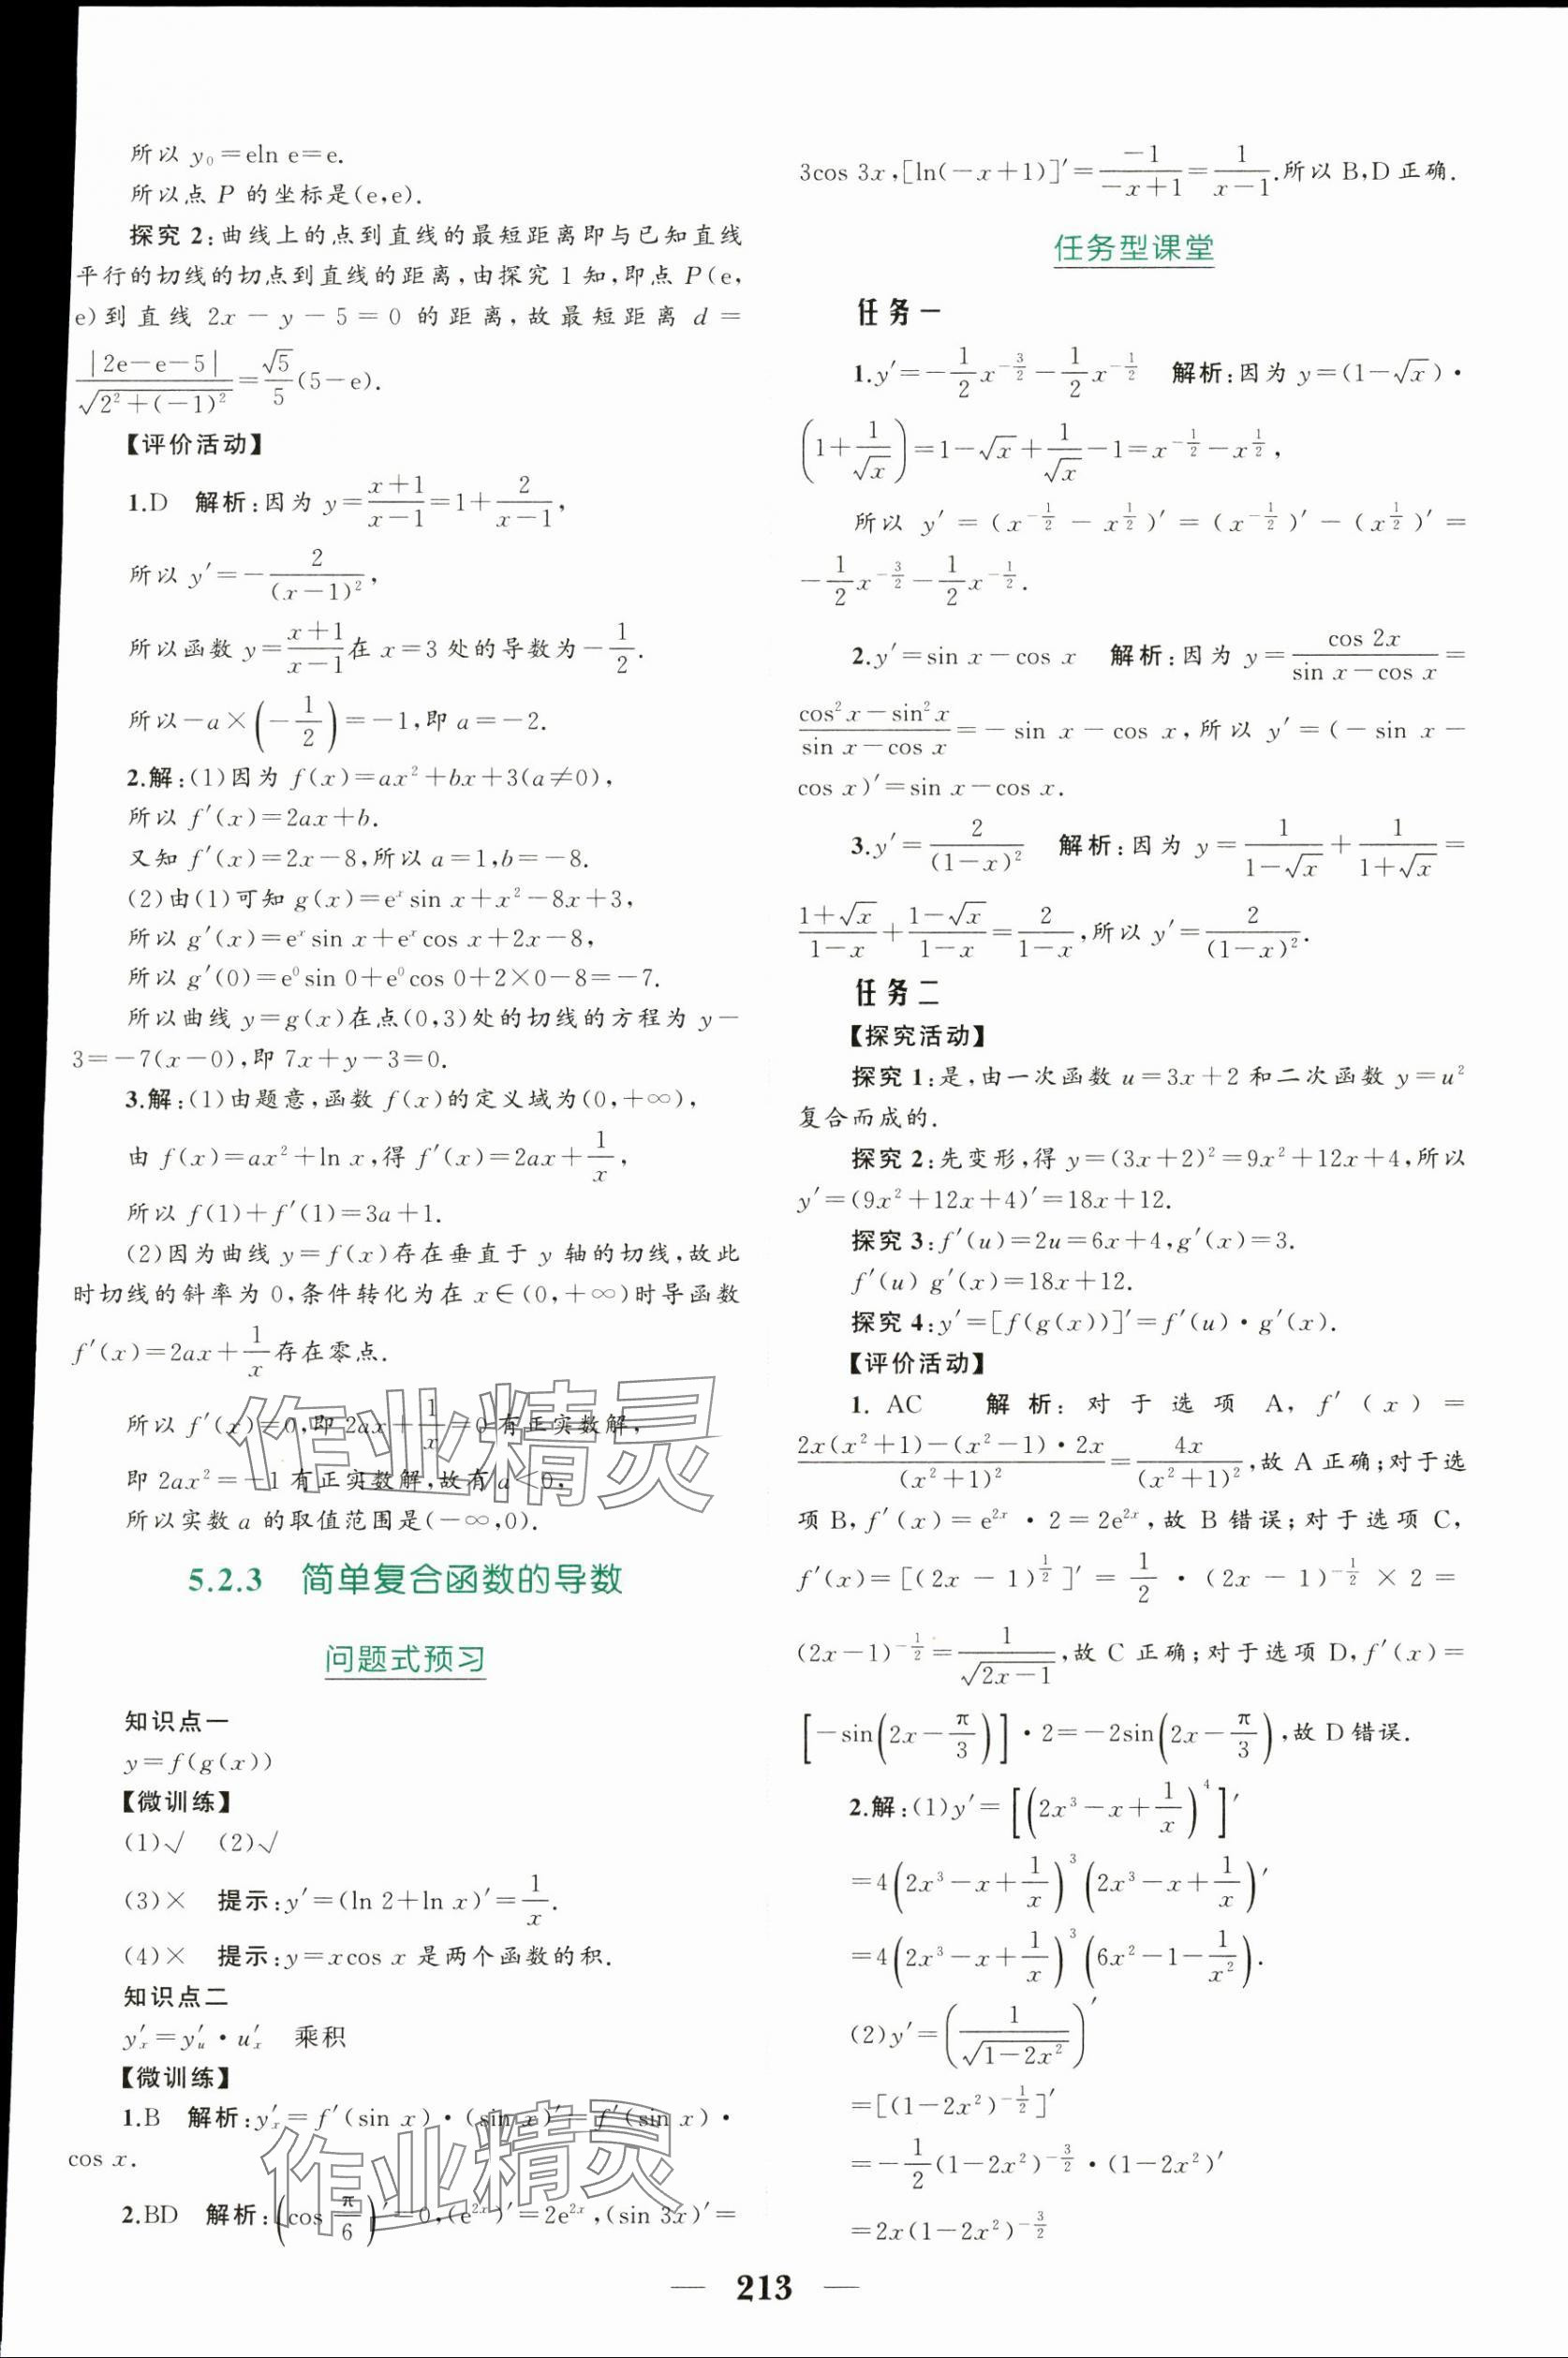 所以 y₀=eln e=e.
所以点 P 的坐标是(e,e).
探究 2:曲线上的点到直线的最短距离即与已知直线
平行的切线的切点到直线的距离,由探究 1 知,即点 P(e,
e)到直线 2x-y-5=0 的距离,故最短距离 d=
|2e-e-5|/√(2²+(-1)²)=√5/5(5-e).
【评价活动】
1.D 解析:因为 y=(x+1)/(x-1)=1+2/(x-1),
所以 y′=-2/(x-1)²,
所以函数 y=(x+1)/(x-1)在 x=3 处的导数为-1/2.
所以-a×(-1/2)=-1,即 a=-2.
2.解:(1)因为 f(x)=ax²+bx+3(a≠0),
所以 f′(x)=2ax+b.
又知 f′(x)=2x-8,所以 a=1,b=-8.
(2)由(1)可知 g(x)=eˣsin x+x²-8x+3,
所以 g′(x)=eˣsin x+eˣcos x+2x-8,
所以 g′(0)=e⁰sin 0+e⁰cos 0+2×0-8=-7.
所以曲线 y=g(x)在点(0,3)处的切线的方程为 y-
3=-7(x-0),即 7x+y-3=0.
3.解:(1)由题意,函数 f(x)的定义域为(0,+∞),
由 f(x)=ax²+ln x,得 f′(x)=2ax+1/x,
所以 f(1)+f′(1)=3a+1.
(2)因为曲线 y=f(x)存在垂直于 y 轴的切线,故此
时切线的斜率为 0,条件转化为在 x∈(0,+∞)时导函数
f′(x)=2ax+1/x存在零点.
所以 f′(x)=0,即 2ax+1/x=0 有正实数解,
即 2ax²=-1 有正实数解,故有 a<0,
所以实数 a 的取值范围是(-∞,0).
5.2.3 简单复合函数的导数
问题式预习
知识点一
y=f(g(x))
【微训练】
(1)√ (2)√
(3)× 提示:y′=(ln 2+ln x)′=1/x.
(4)× 提示:y=xcos x 是两个函数的积.
知识点二
y′ₓ=y′ᵤ·u′ₓ 乘积
【微训练】
1.B 解析:y′ₓ=f′(sin x)·(sin x)′=f′(sin x)·
cos x.
2.BD 解析:(cos π/6)′=0,(e²ˣ)′=2e²ˣ,(sin 3x)′=
3cos 3x,[ln(-x+1)]′=-1/(-x+1)=1/(x-1).所以 B,D 正确.
任务型课堂
任务一
1.y′=-1/2x^(-3/2)-1/2x^(-1/2) 解析:因为 y=(1-√x)·
(1+1/√x)=1-√x+1/√x-1=x^(-1/2)-x^(1/2),
所以 y′=(x^(-1/2)-x^(1/2))′=(x^(-1/2))′-(x^(1/2))′=
-1/2x^(-3/2)-1/2x^(-1/2).
2.y′=sin x-cos x 解析:因为 y=cos 2x/(sin x-cos x)=
(cos²x-sin²x)/(sin x-cos x)=-sin x-cos x,所以 y′=(-sin x-
cos x)′=sin x-cos x.
3.y′=2/(1-x)² 解析:因为 y=1/(1-√x)+1/(1+√x)=
(1+√x)/(1-x)+(1-√x)/(1-x)=2/(1-x),所以 y′=2/(1-x)².
任务二
【探究活动】
探究 1:是,由一次函数 u=3x+2 和二次函数 y=u²
复合而成的.
探究 2:先变形,得 y=(3x+2)²=9x²+12x+4,所以
y′=(9x²+12x+4)′=18x+12.
探究 3:f′(u)=2u=6x+4,g′(x)=3.
f′(u) g′(x)=18x+12.
探究 4:y′=[f(g(x))]′=f′(u)·g′(x).
【评价活动】
1. AC 解析:对于选项 A,f′(x)=
(2x(x²+1)-(x²-1)·2x)/(x²+1)²=4x/(x²+1)²,故 A 正确;对于选
项 B,f′(x)=e²ˣ·2=2e²ˣ,故 B 错误;对于选项 C,
f′(x)=[(2x-1)^(1/2)]′=1/2·(2x-1)^(-1/2)×2=
(2x-1)^(-1/2)=1/√(2x-1),故 C 正确;对于选项 D,f′(x)=
[-sin(2x-π/3)]·2=-2sin(2x-π/3),故 D 错误.
2.解:(1)y′=[(2x³-x+1/x)⁴]′
=4(2x³-x+1/x)³(2x³-x+1/x)′
=4(2x³-x+1/x)³(6x²-1-1/x²).
(2)y′=(1/√(1-2x²))′
=[(1-2x²)^(-1/2)]′
=-1/2(1-2x²)^(-3/2)·(1-2x²)′
=2x(1-2x²)^(-3/2)
— 213 —
作业精灵
作业精灵